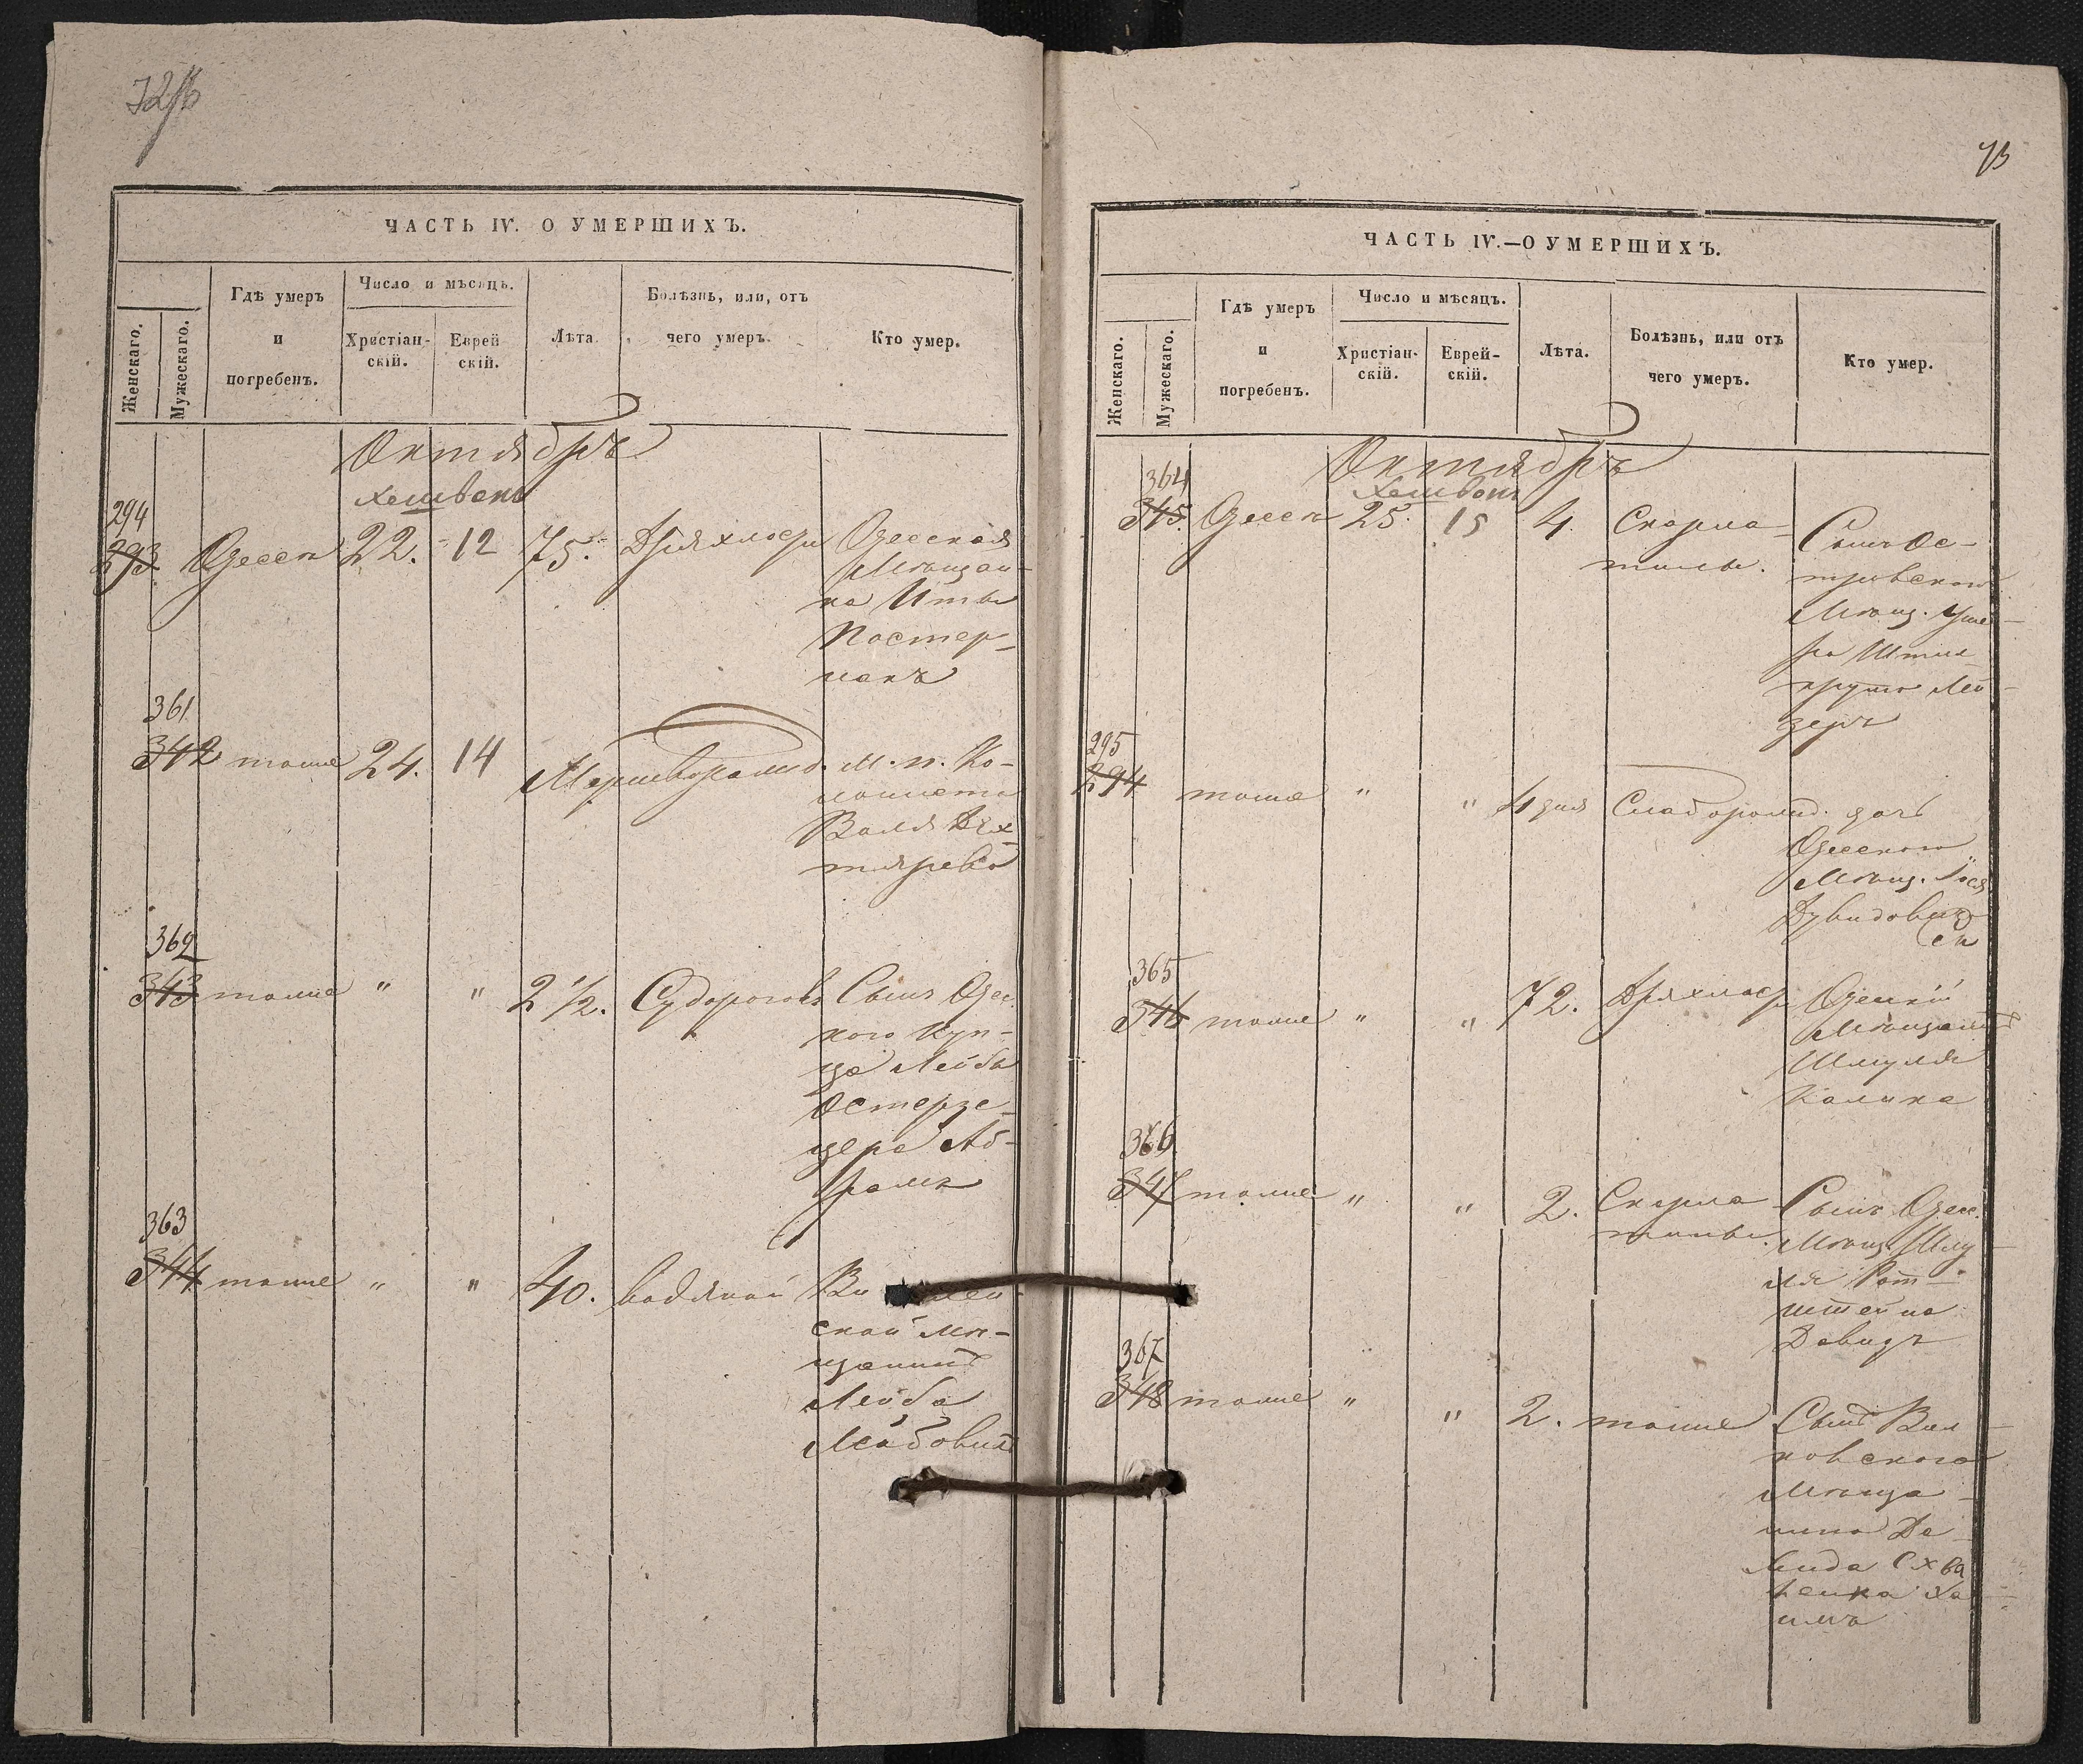 ЧАСТЬ IV. О УМЕРШИХЪ.
Женскаго.
Мужескаго.
Гдѣ умеръ
и
погребенъ.
Число и мѣсяцъ.
Христіан-
скій.
Еврей
скій.
Лѣта.
Болѣзнь, или, отъ
чего умеръ.
Кто умер.
Октябрь
Хешвонъ
294
293. Одесса 22. 12 75. Дряхлость Одесская
Мѣщан-
ка Итя
Пастер-
накъ
361
342 тоже 24. 14 Мертворожд. м. п. Ко-
лониста
Воля Дех-
тярева
362
343 тоже " " 2 1/2. Судорога Сынъ Одес.
каго Куп-
ца Лейбы
Остерзе-
цера Аб-
рамъ
363
344 тоже " " 40. водяной
ской мѣ-
щанинъ
Лейба
Лейбовичъ
73
ЧАСТЬ IV.—О УМЕРШИХЪ.
Женскаго.
Мужескаго.
Гдѣ умеръ
и
погребенъ.
Число и мѣсяцъ.
Христіан-
скій.
Еврей-
скій.
Лѣта.
Болѣзнь, или отъ
чего умеръ.
Кто умер.
Октябрь
Хешвонъ
364
345. Одесса 25. 15 4. Скарла-
тины. Сынъ Ос-
тровскаго
Мѣщ. Уше-
ра
Лей-
зеръ
295
294 тоже " " 4 дня Слаборожд. дочь
Одесскаго
Мѣщ. Іося
Дувидовича
365
346 тоже " " 72. Дряхлость Одесскій
Мѣщанинъ
Шмуля
Калика
366
347 тоже " " 2. Скарла
тины. Сынъ Одес.
Мѣщ. Шму
ля Рот-
штейна
Давидъ
367
348 тоже " " 2. тоже Сынъ Вил
ковскаго
Мѣща-
нина Да
вида
Ха-
имъ